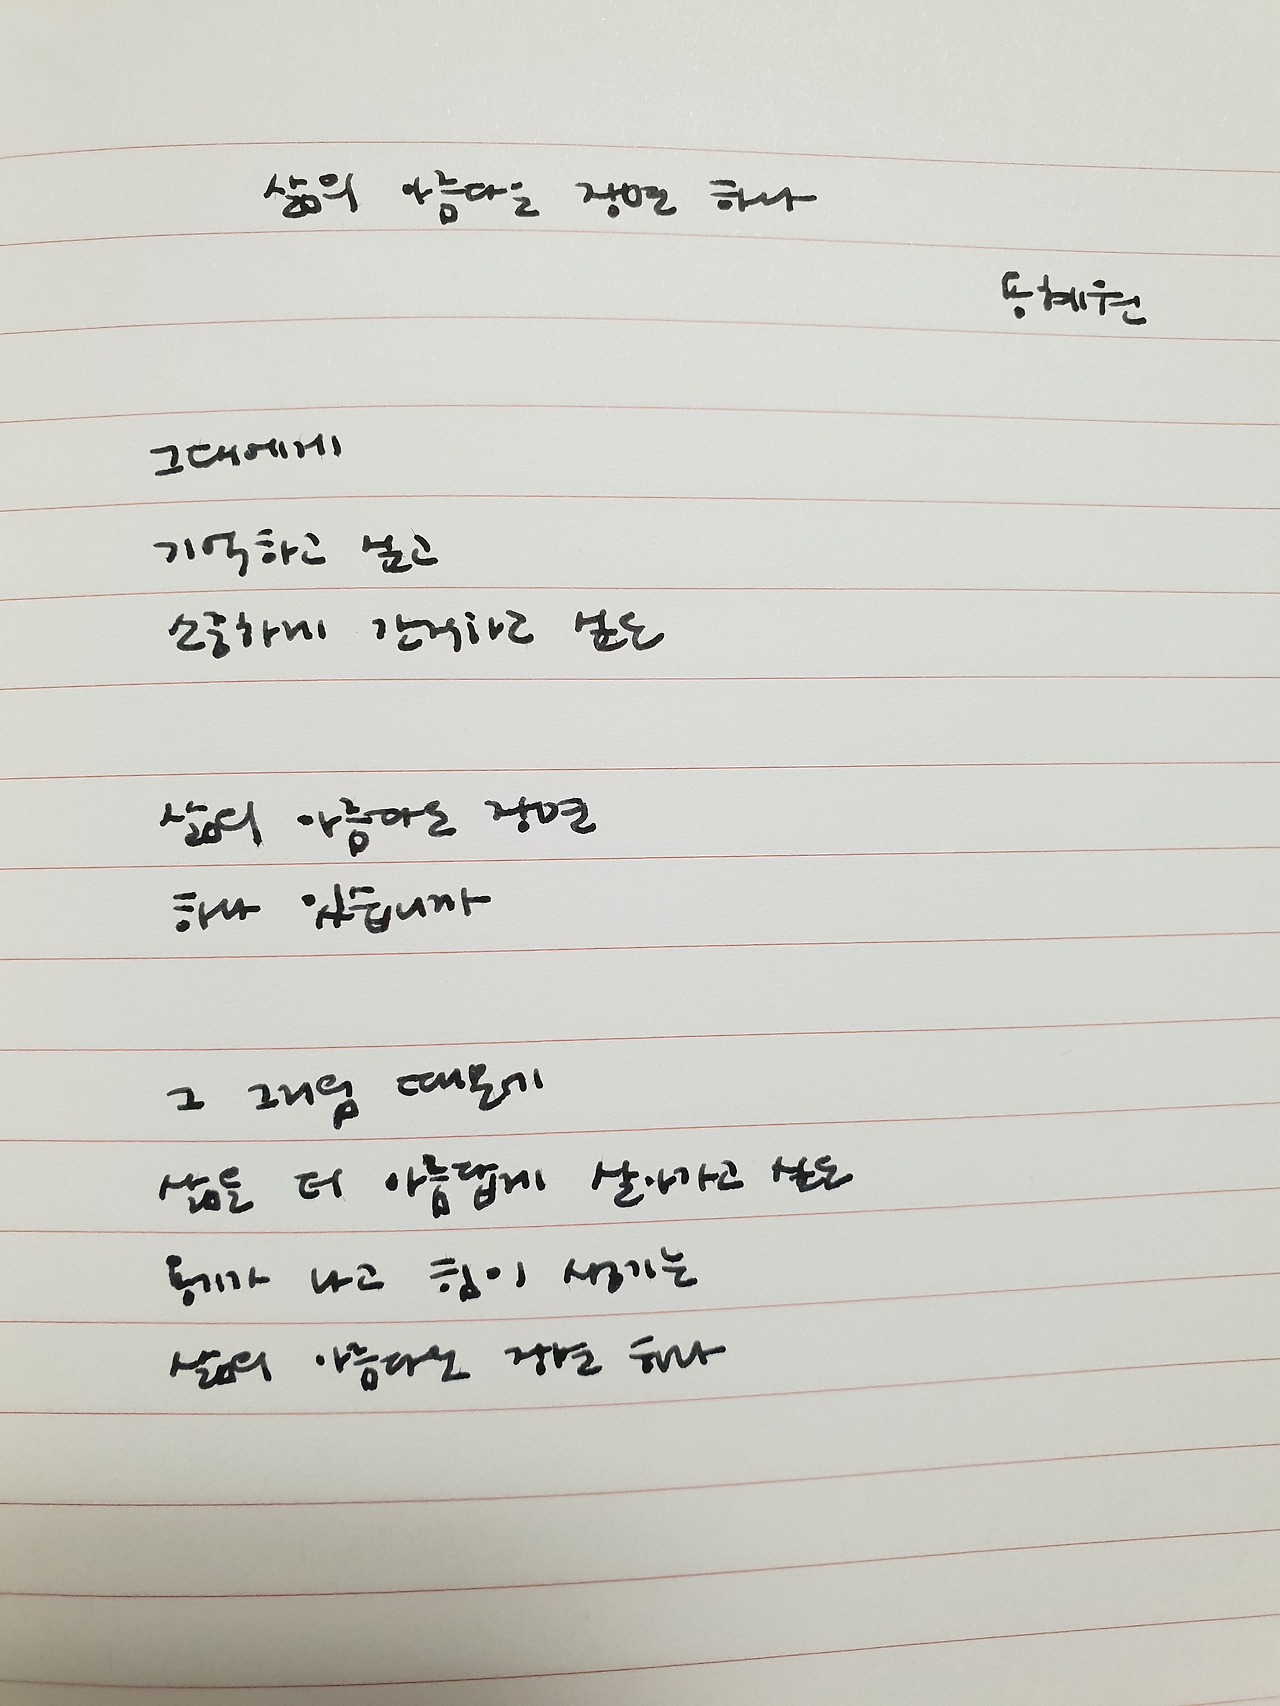 삶의 아름다운 장면 하나
용혜원
그대에게
기억하고 싶고
소중하게 간직하고 싶은
삶의 아름다운 장면
하나 있습니까
그 그리움 때문에
삶을 더 아름답게 살아가고 싶은
용기가 나고 힘이 생기는
삶의 아름다운 장면 하나